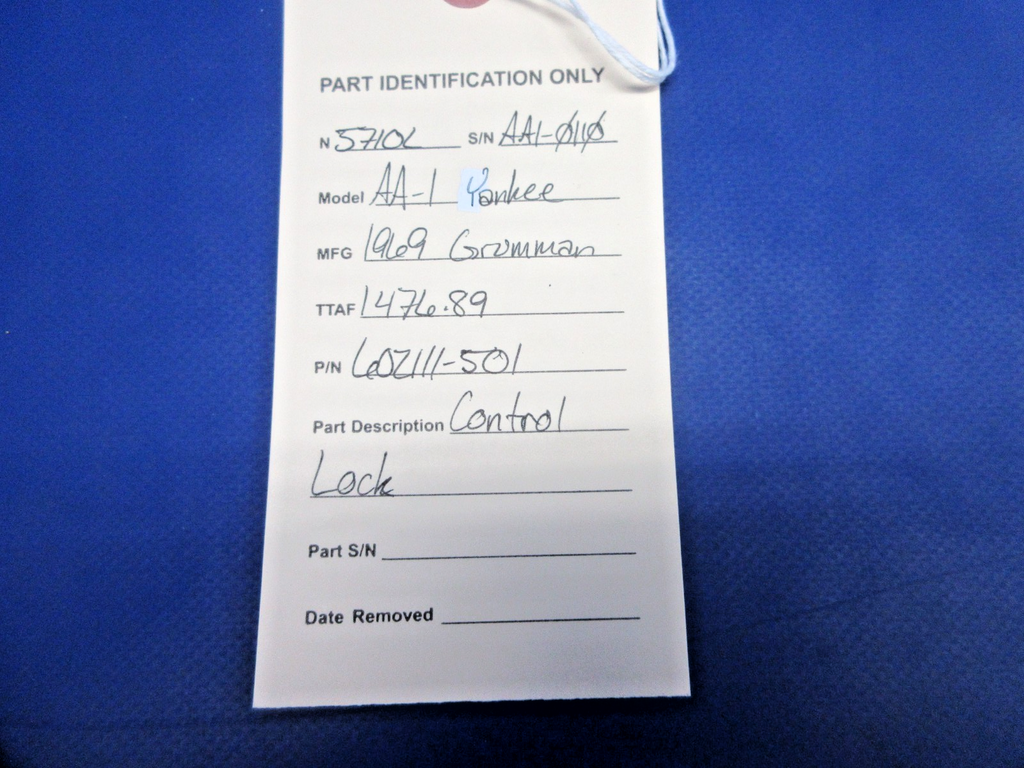 PART IDENTIFICATION ONLY
N 5710L S/N AA1-0110
Model AA-1 Yankee
MFG 1969 Grumman
TTAF 1476.89
P/N 602111-501
Part Description Control
Lock
Part S/N
Date Removed